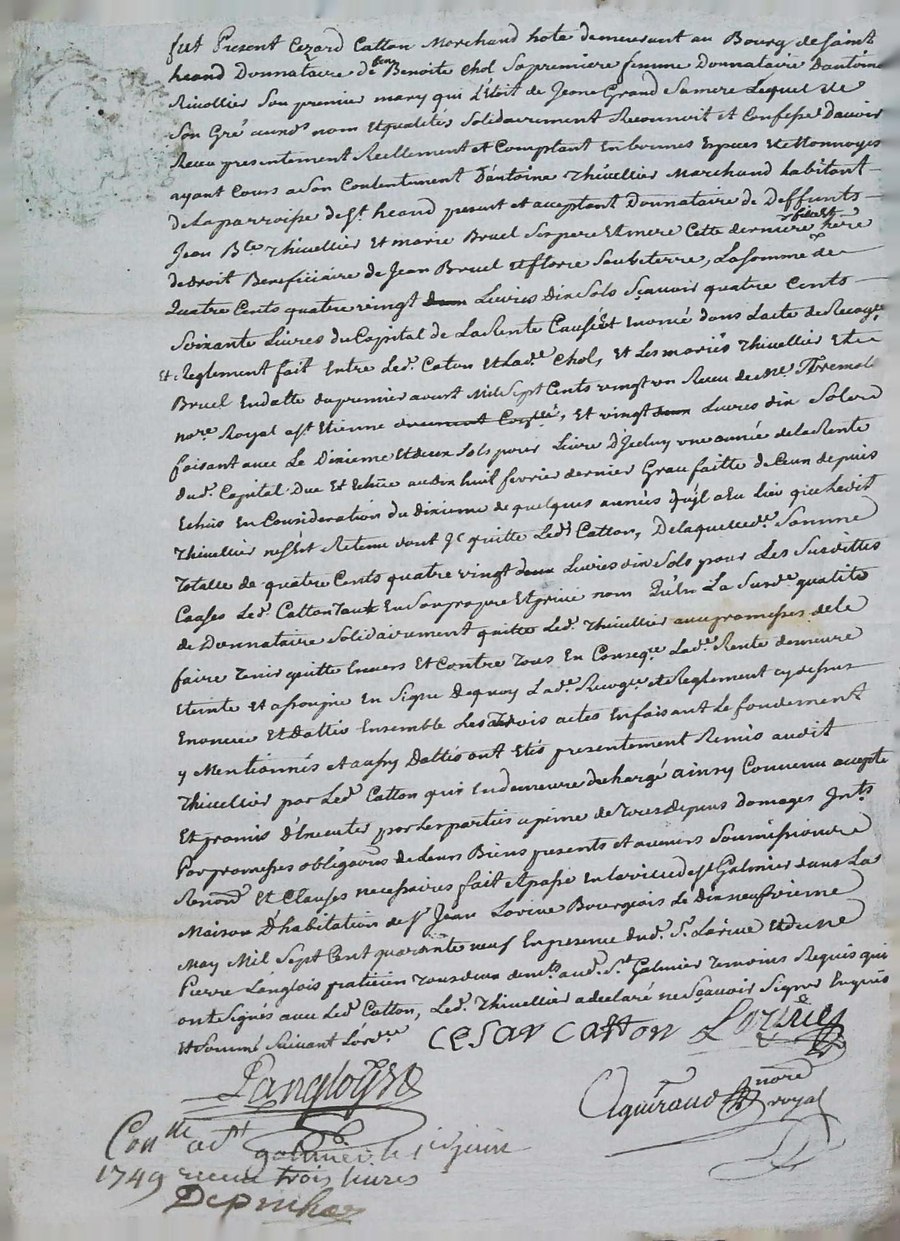 fut Present Cezard Catton Marchand hote demeurant au Bourg de Saint
heand Donnataire de Benoite Chol Sa premiere femme Donnataire D'antoine
Rivollier Son premier mary qui L'étoit de Jeane Grand Sa mere Lequel de
Son Gré aux nom Et qualites Solidairement Reconnoit et Confesse D'avoir
Receu presentement Reellement et Comptant En bonnes Especes et Monnoyes
ayant Cours a Son Contentement D'antoine Thivellier Marchand habitant
de La parroisse de St. heand present et acceptant Donnataire de Deffunts
Jean Bte. Thivellier Et marie Bruel Ses pere Et mere Cette derniere here
de droit Beneficiaire de Jean Bruel et florie Sauveterre, La Somme de
Quatre Cents quatre vingt Livres dix Sols Sçavoir quatre Cents
Soixante Livres du Capital de La Rente Causée et Enoncé dans L'acte de Recogn
Et Reglement fait Entre Led. Caton Et Lad. Chol, Et Les mariés Thivellier Et
Bruel En datte du premier avust Mil Sept Cents vingt un Receu de me.
nore. Royal a St. Etienne, Et vingt Livres dix Sols
faisant avec Le Dixieme Et deux Sols pour Livre D'Jceluy une année de la Rente
dud. Capital Due Et Echüe au dix huit fevrier dernier Grace faitte de Ceux depuis
Echus En Consideration du dixieme de quelques années qu'il a Eu Lieu que Ledit
Thivellier ne S'est Retenu dont Jl quitte Led. Catton, De laquelle d. Somme
Totalle de quatre Cents quatre vingt Livres dix Sols pour Les Susdittes
Causes Led. Catton Tant En Son propre Et privé nom Qu'En La Susd. qualité
de Donnataire Solidairement quitte Led. Thivellier avec promesses de Le
faire Tenir quitte Envers Et Contre Tous En Conseqce. Lad. Rente demeure
Eteinte Et assoupie En Signe De quoy Lad. Recogn. et Reglement cy dessus
Enoncés Et dattés Ensemble Les Trois actes En faisant Le fondement
y Mentionnés et aussy Dattés ont Etés presentement Remis audit
Thivellier par Led. Catton qui En demeure dechargé ainsy Convenu accepté
Et promis d'Executer par Les parties a peine de Tous depens Domages Jnts
Par promesses obligaons de Leurs Biens presents et avenirs Soumissions
Renonons Et Clauses necessaires fait Et passé En La ville de St. Galmier dans La
Maison D'habitation de Sr. Jean Lorine Bourgeois Le Dix neufvieme
May Mil Sept Cent quarante neuf En presence dud. Sr. Lorine Et de me
Pierre Langlois praticien Tous deux demts. aud. St. Galmier Temoins Requis qui
ont Signés avec Led. Catton, Led. Thivellier a declaré ne Sçavoir Signer Enquis
Et Sommé Suivant L'ordce.
CESAR CATTON Lorine
Langlois
Aguiraud nore royal
Conlle a St
galmier le juin
1749 receu trois livres